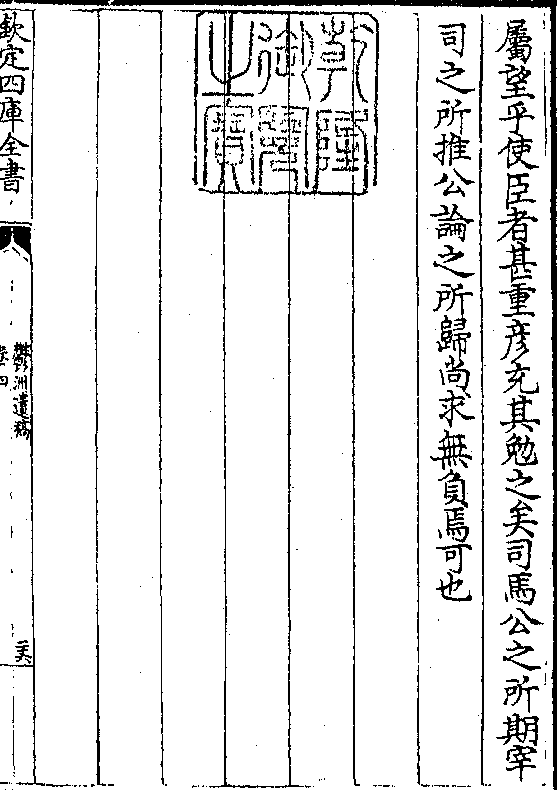 屬望乎使臣者甚重彦充其勉之矣司馬公之所期宰
司之所推公論之所歸尚求無負焉可也
乾隆御覽之寶
欽定四庫全書
鬱洲遺稿
卷四